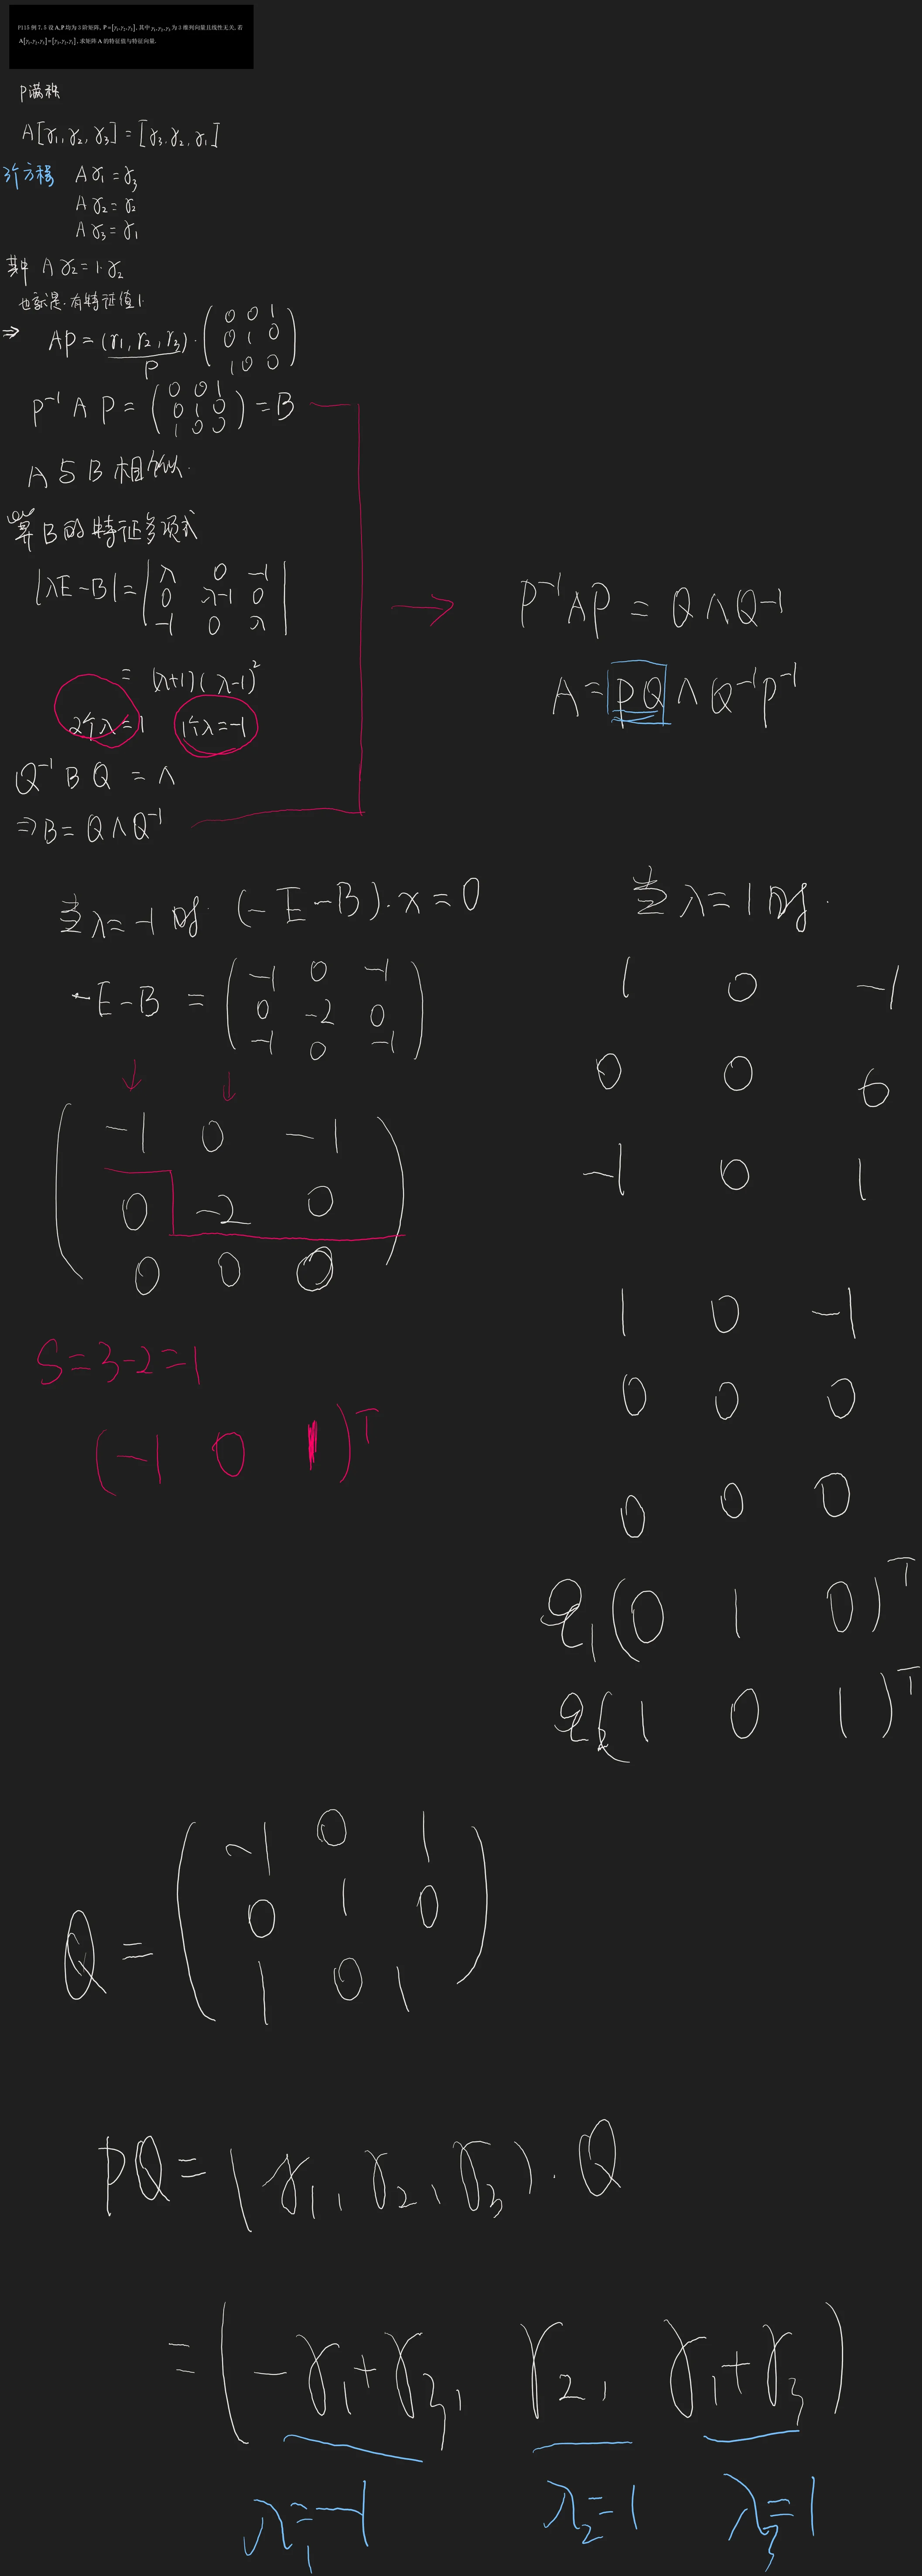 P115 例 7.5 设 A,P 均为 3 阶矩阵, P=[γ₁,γ₂,γ₃], 其中 γ₁,γ₂,γ₃ 为 3 维列向量且线性无关, 若
A[γ₁,γ₂,γ₃]=[γ₃,γ₂,γ₁], 求矩阵 A 的特征值与特征向量.
P满秩
A[γ₁, γ₂, γ₃] = [γ₃, γ₂, γ₁]
3个方程 Aγ₁=γ₃
Aγ₂=γ₂
Aγ₃=γ₁
其中 Aγ₂=1·γ₂
也就是. 有特征值1.
⇒ AP = (γ₁, γ₂, γ₃) · ( 0 0 1
0 1 0
1 0 0 )
P
P⁻¹ A P = ( 0 0 1
0 1 0
1 0 0 ) = B
A与B相似.
算B的特征多项式
|λE-B| = | λ 0 -1
0 λ-1 0
-1 0 λ |
= (λ+1)(λ-1)²
2个λ=1 1个λ=-1
Q⁻¹ B Q = Λ
⇒ B = QΛQ⁻¹
→ P⁻¹AP = QΛQ⁻¹
A = PQ Λ Q⁻¹P⁻¹
当λ=-1时. (-E-B)·x=0
-E-B = ( -1 0 -1
0 -2 0
-1 0 -1 )
↓ ↓
( -1 0 -1
0 -2 0
0 0 0 )
S=3-2=1
(-1 0 1)ᵀ
当λ=1时.
1 0 -1
0 0 0
-1 0 1
1 0 -1
0 0 0
0 0 0
q₁(0 1 0)ᵀ
q₂(1 0 1)ᵀ
Q = ( -1 0 1
0 1 0
1 0 1 )
PQ = (γ₁, γ₂, γ₃)·Q
= (-γ₁+γ₃, γ₂, γ₁+γ₃)
λ₁=-1 λ₂=1 λ₃=1